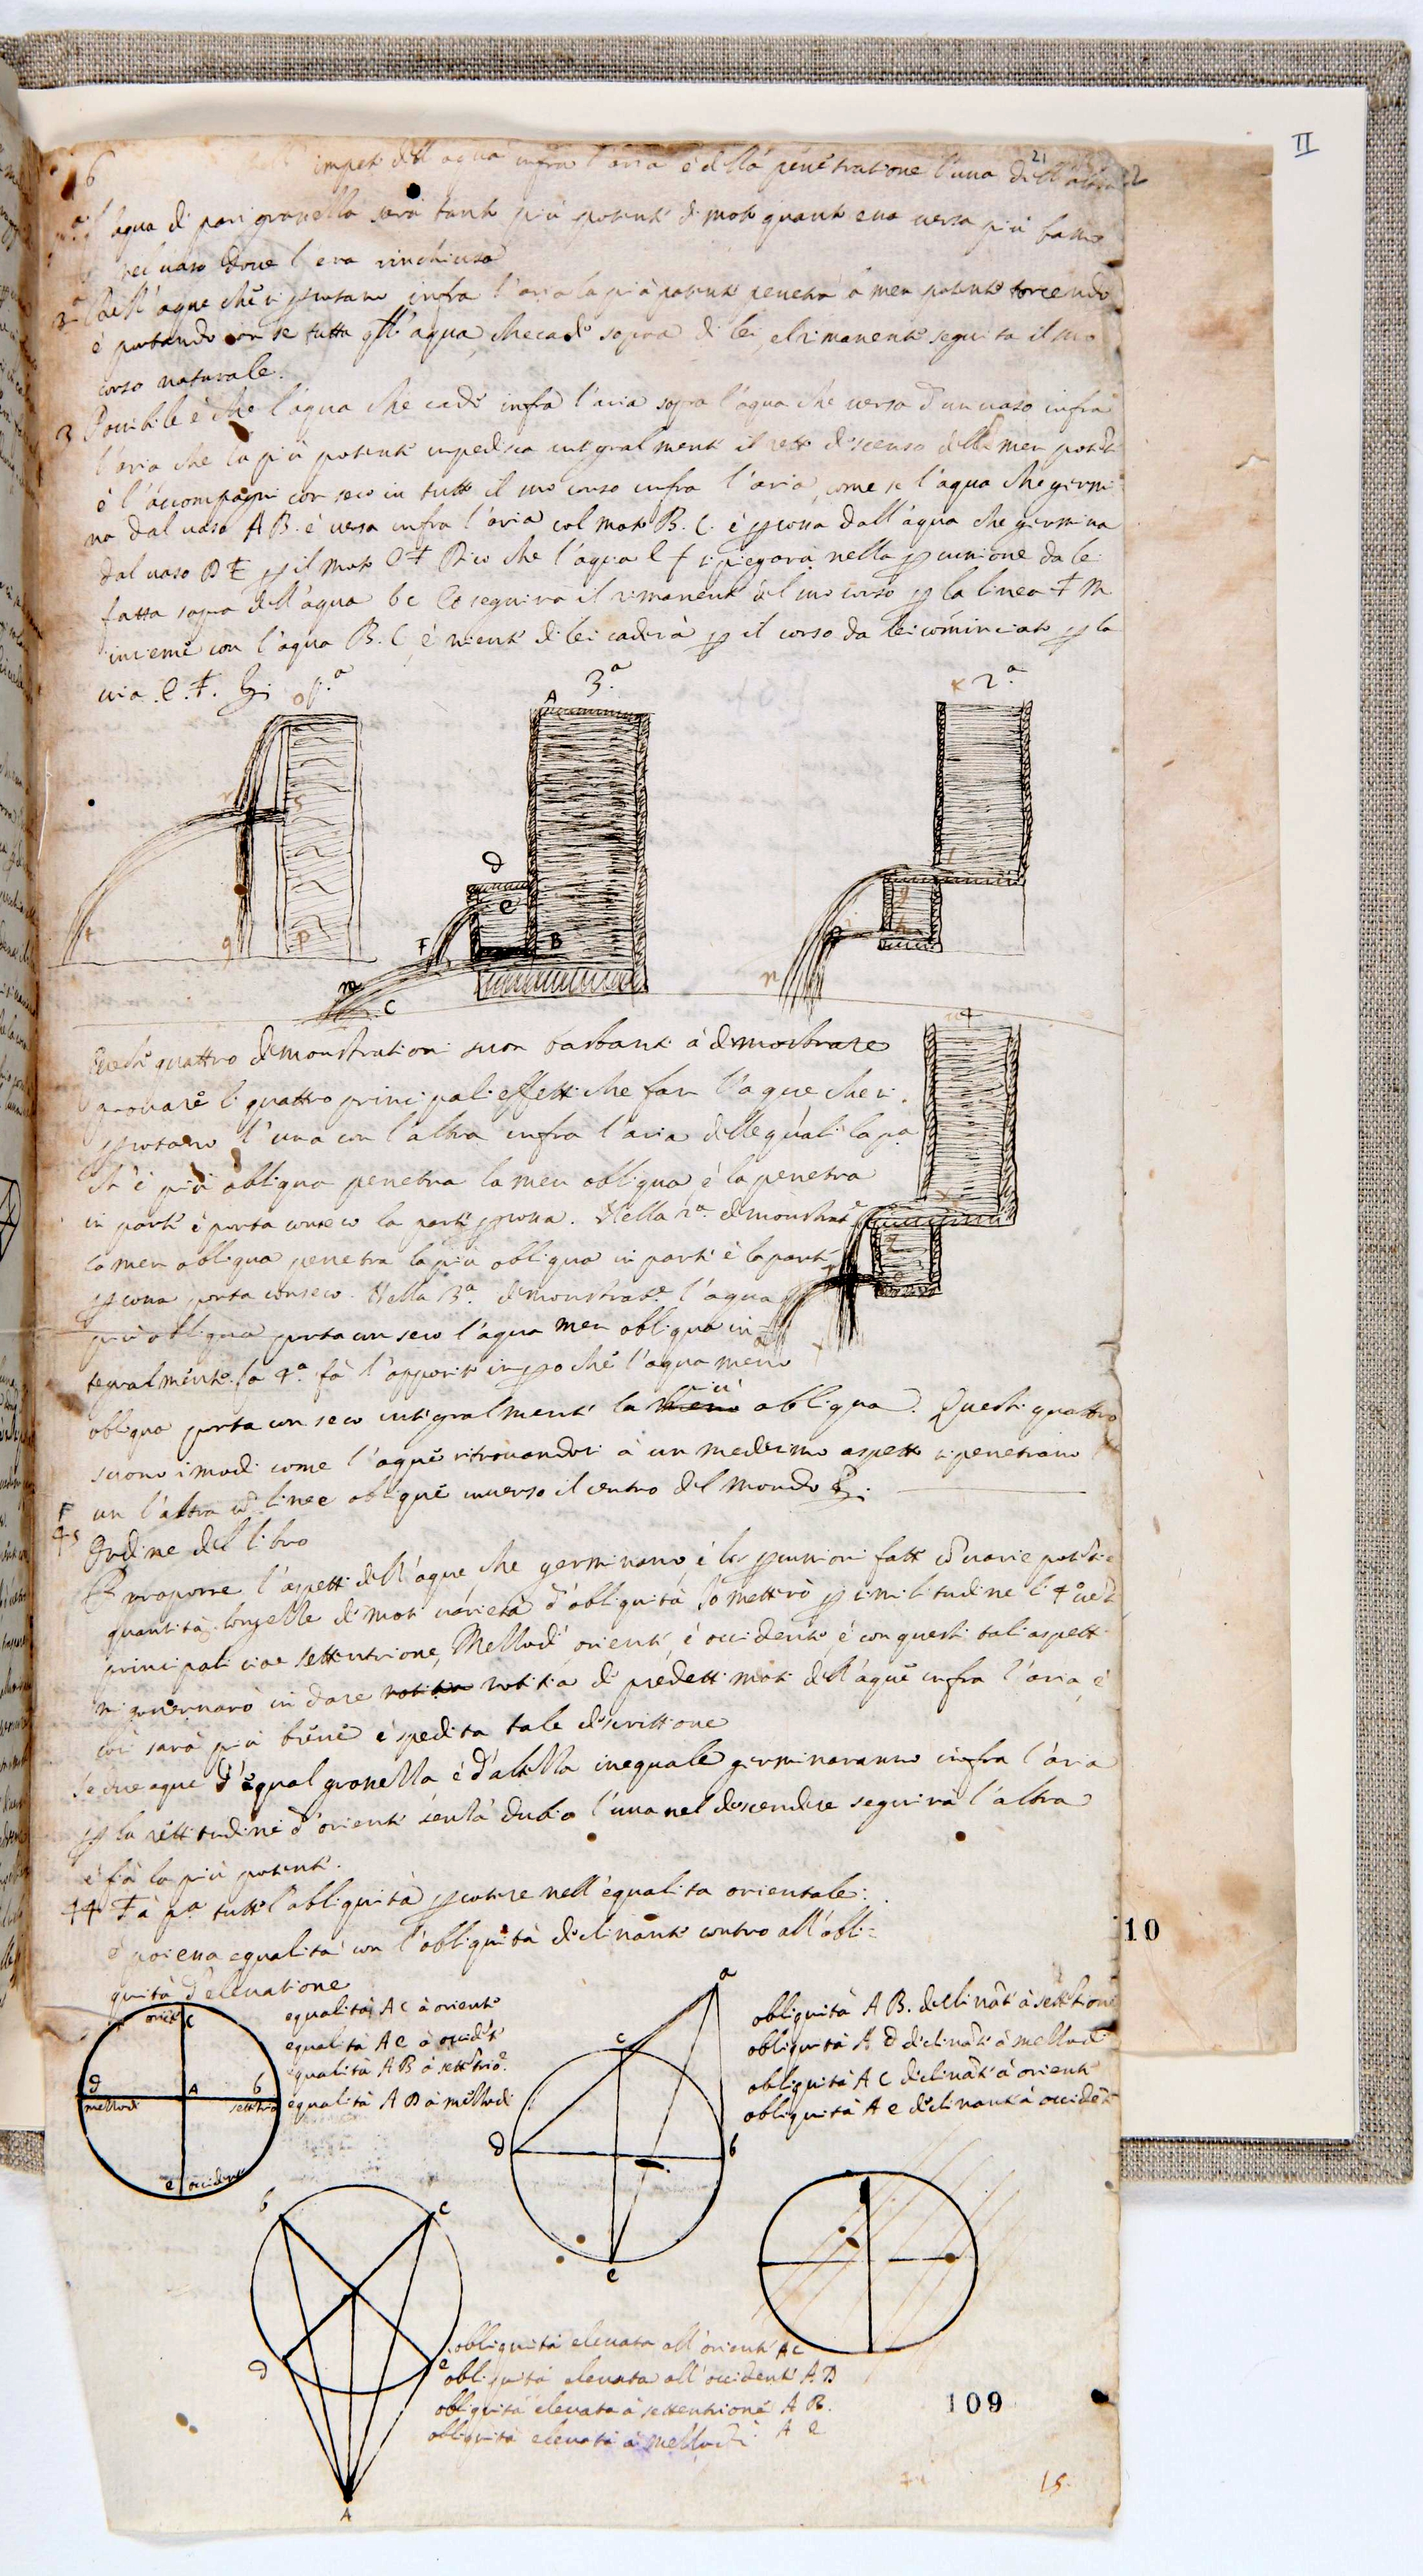 II
6
impeto dell'acqua infra l'aria è della penetratione l'una dell'altra
21
l'aqua di pari grossezza sarà tanto più potente di moto quanto ella versa più bassa
nel vaso dove l'era rinchiusa
2ª Dell'aque che si percotano infra l'aria la più potente penetra la men potente torcendo
è portando con se tutta qll'aqua, che cade sopra di lei, el rimanente seguita il suo
corso naturale.
3 Possibile è che l'aqua che cade infra l'aria sopra l'aqua che versa d'un vaso infra
l'aria che la più potente impedisca integralmente il retto discenso della men potente
è l'accompagni con seco in tutto il suo corso infra l'aria, come se l'aqua che germi
na dal vaso A B. è versa infra l'aria col moto B. C. è percossa dall'aqua che germina
dal vaso D E per il moto e F Dico che l'aqua e f si piegarà nella percussione da lei
fatta sopra dell'aqua b c Et seguirà il rimanente del suo corso per la linea F m
insieme con l'aqua B. C, è niente di lei caderà per il corso da lei cominciato per la
via .e.F.
o p.ª
3.ª
2.ª
A
K
r
s
t
q
p
d
e
F
B
m
C
n
4
Questi quattro dimonstrationi suon bastanti à dimostrare
provare li quattro principali effetti che fan l'aque che si
percotano l'una con l'altra infra l'aria delle quali la pª
ch'è più obliqua penetra la men obliqua, è la penetra
in parte è porta con seco la parte percossa. Nella 2ª dimonstratᵉ
la men obliqua penetra la più obliqua in parte è la parte
percossa porta con seco. Nella 3ª. dimonstratᵉ l'aqua
più obliqua porta con seco l'aqua men obliqua in
tegralmente. la 4ª fà l'opposito imperoche l'aqua meno
più
obliqua porta con seco integralmente la meno obliqua. Questi quattro
suono i modi come l'aque ritrovandosi à un medesimo aspetto si penetrano
un l'altra cō linee oblique inverso il centro del mondo
F
45 Ordine del libro
Per proporre l'aspetti dell'aque che germinano, è lor percussioni fatte cō varie potētie
quantità longezze di moti varietà d'obliquità, Io metterò per similitudine li 4º vēti
principali cioe settentrione, Mezzodi, oriente, è occidente, è con questi tali aspetti
mi governarò in dare notitia notitia di predetti moti dell'aque infra l'aria, è
cosi sarà più breve è spedita tale discrittione
Se due aque d'equal grossezza è d'altezza inequale germinaranno infra l'aria
per la rettitudine d'oriente senza dubio l'una nel descendere seguirà l'altra
è fia la più potente.
44 Fà pª tutte l'obliquità percotere nell'equalità orientale:
è poi essa equalità con l'obliquità declinante contro all'obli=
quità d'elevatione
10
oriēte
c
d
mezzodi
A
b
settētrio
e
occidente
equalità A C à oriente
equalità A e à occidēte
equalità A B à settētrioᵉ
equalità A D à mezzodi
a
c
d
b
e
obliquità A B. declināte à settētrione
obliquità A D declināte à mezzodi
obliquità A C declināte à oriente
obliquità A e declinante à occidēte
b
c
d
e
A
obliquità elevata all'oriente A C
obliquità elevata all'occidente A D
obliquità elevata à settentrione A B.
obliquità elevata à mezzodi A e
109
15.